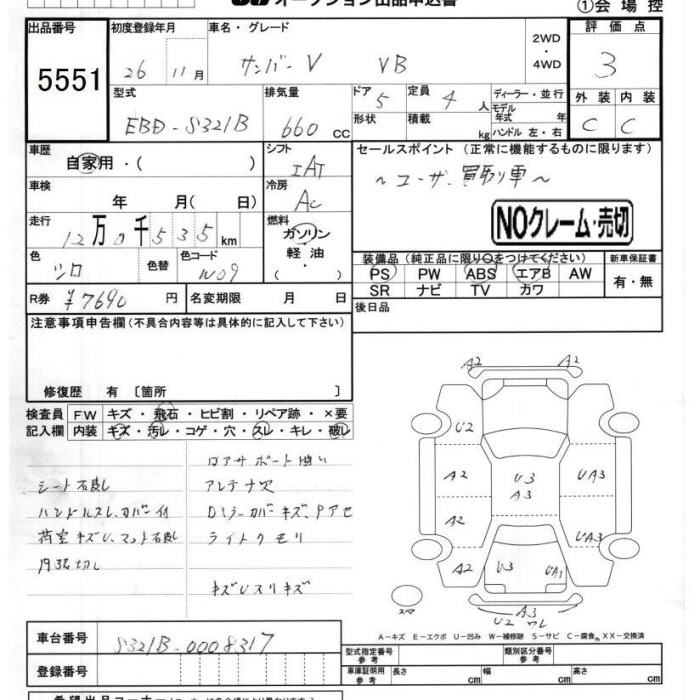 オークション出品申込書
①会場控
出品番号 初度登録年月 車名・グレード 2WD・4WD 評価点
5551 26 11月 サンバーV VB 3
型式 排気量 ドア 5 定員 4人 ディーラー・並行 外装 内装
EBD-S321B 660cc 形状 積載 kg モデル年式 年 ハンドル 左・右 C C
車歴 シフト セールスポイント(正常に機能するものに限ります)
自家用・( ) IAT ~ユーザー買取り車~
車検 年 月( 日) 冷房 AC
NOクレーム・売切
走行 12万0千535km 燃料 ガソリン・軽油・( )
色 シロ 色替 色コード W09
装備品(純正品に限り○をつけてください) 新車保証書
PS PW ABS エアB AW 有・無
SR ナビ TV カワ
R券 ¥7690円 名変期限 月 日 後日品
注意事項申告欄(不具合内容等は具体的に記入して下さい)
修復歴 有〔箇所 〕
検査員 FW キズ・飛石・ヒビ割・リペア跡・×要
記入欄 内装 キズ・汚レ・コゲ・穴・スレ・キレ・破レ
シート不良 アンテナ欠
ハンドルスレ、カバー付 Dミラーカバーキズ、Pアセ
荷室キズU、マット不良 ライトクモリ
内張切レ キズUスリキズ
A2 A2
U2
A2 U3 A3 UA3
A2 UA3
A2 U3 UA1 A2
スペア A3
U2 ワレ
A-キズ E-エクボ U-凹み W-補修跡 S-サビ C-腐食 XX-交換済
車台番号 S321B-0008317
型式指定番号 参考 類別区分番号 参考
登録番号 車庫証明用 参考 長さ cm 幅 cm 高さ cm